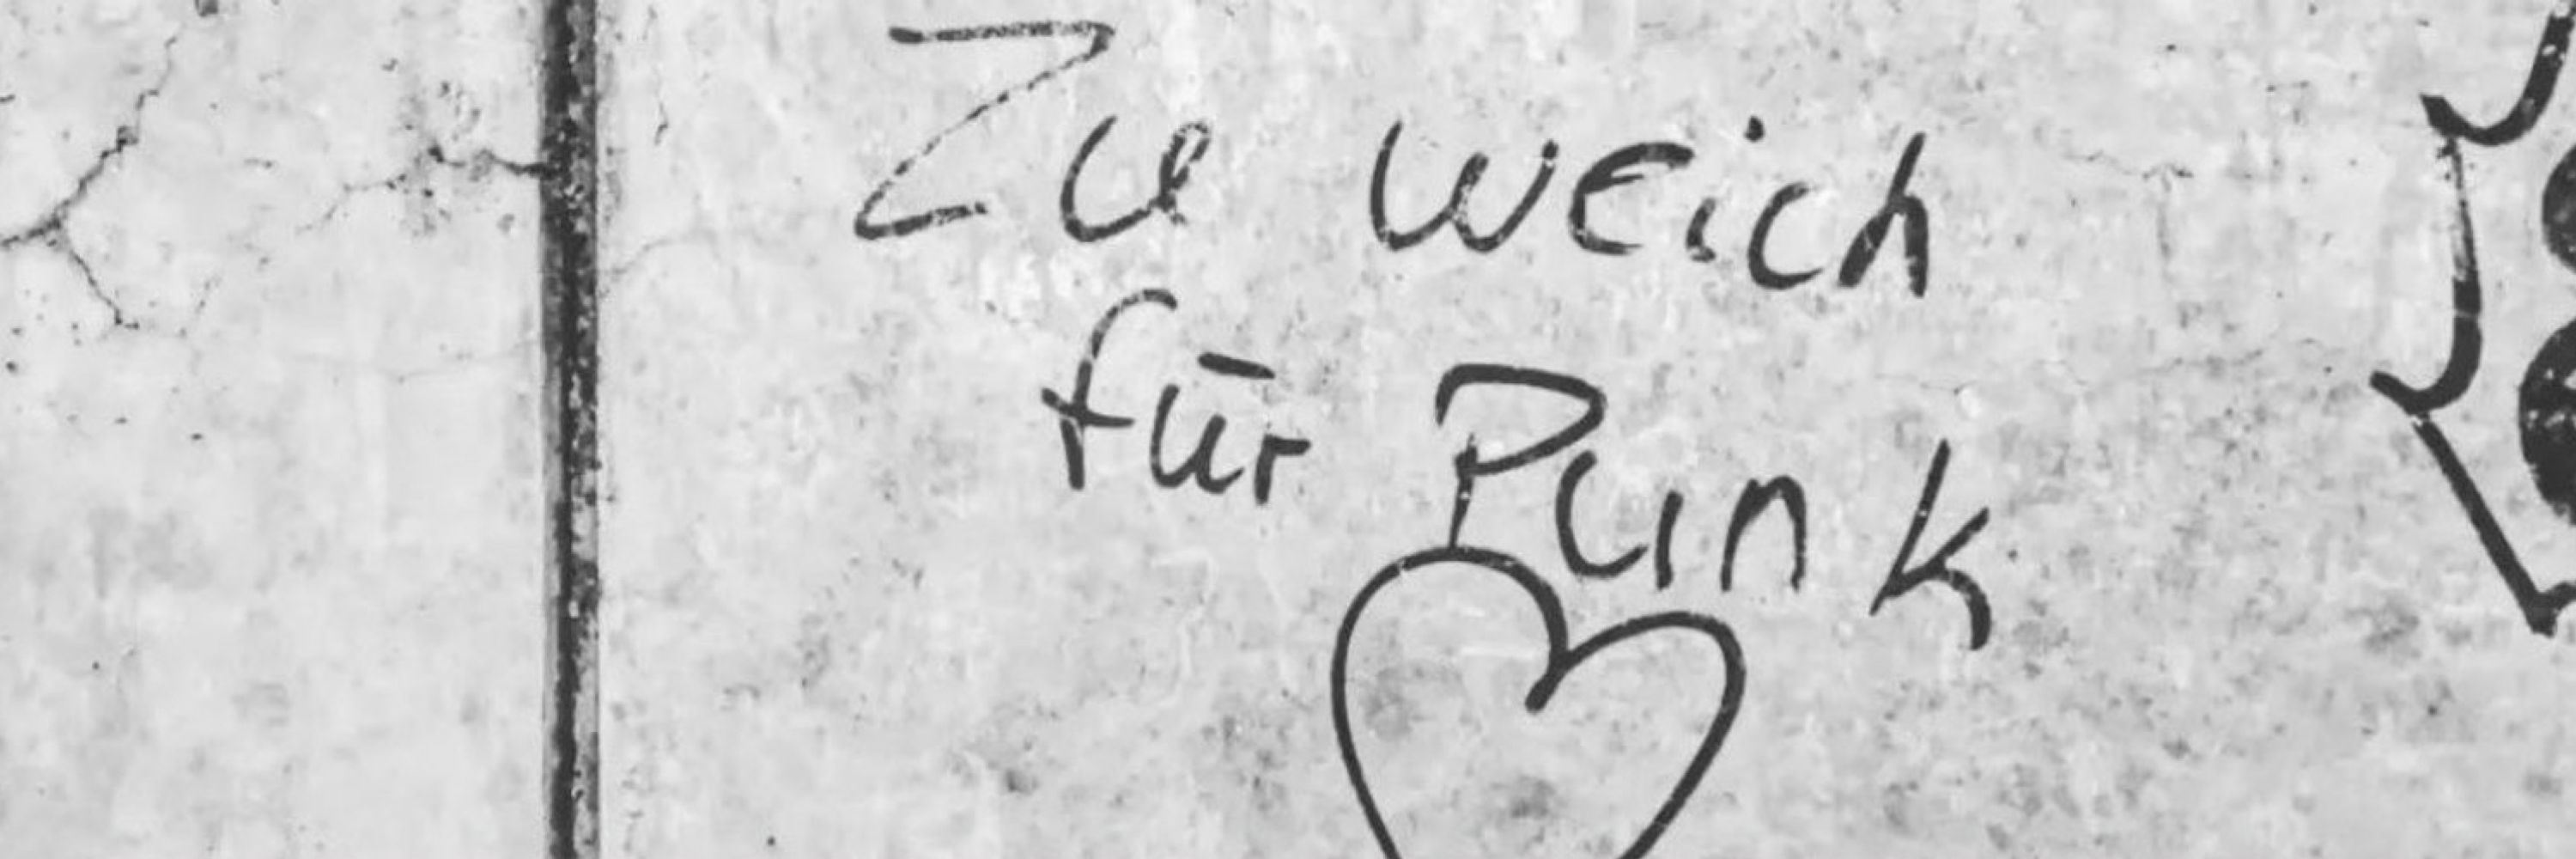 Zu weich
für Punk